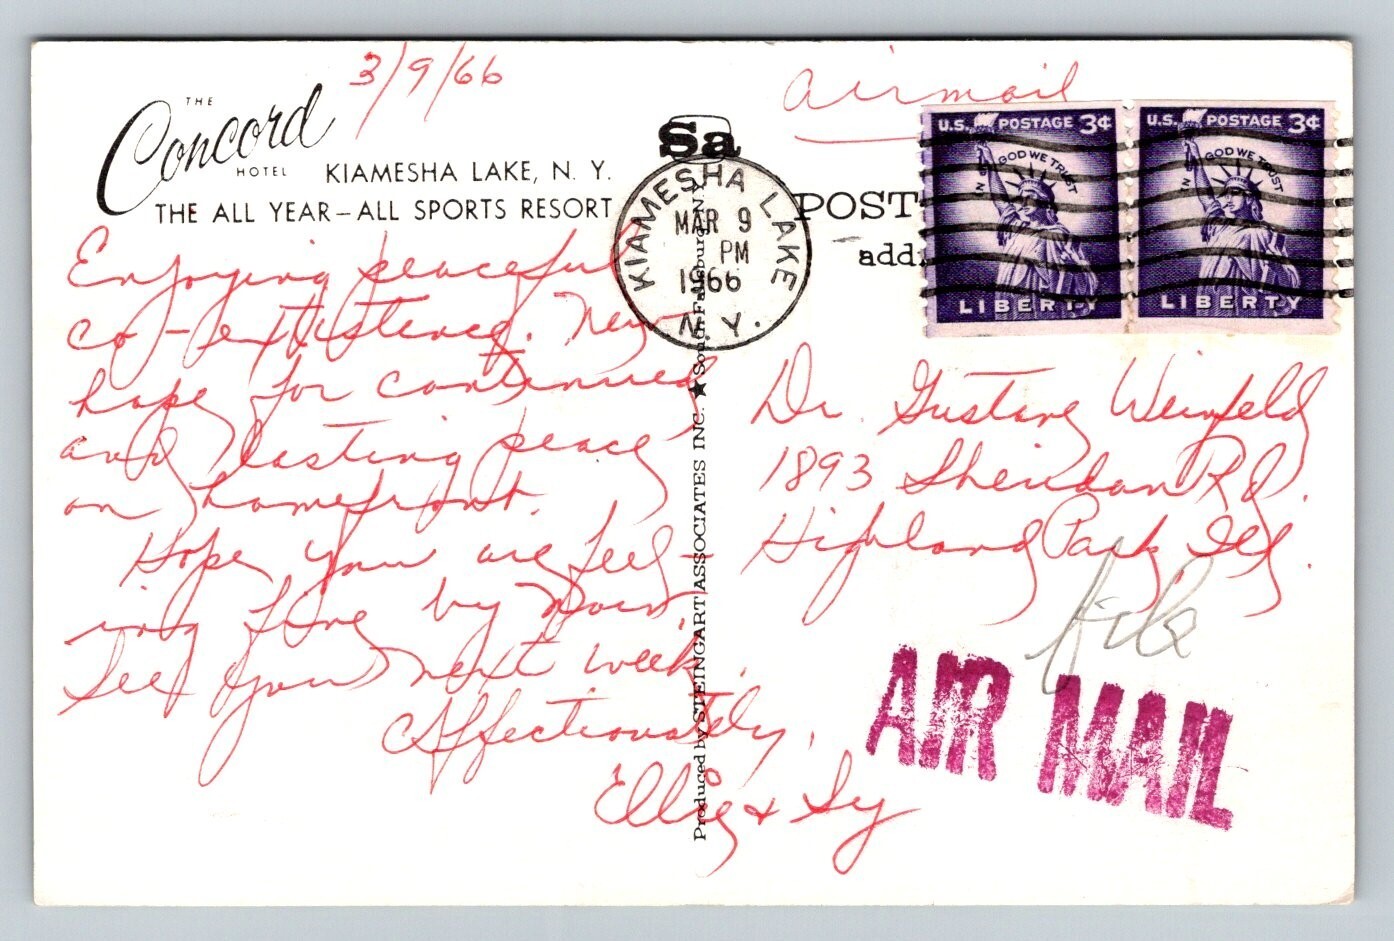 3/9/66
THE
Concord
HOTEL
KIAMESHA LAKE, N. Y.
THE ALL YEAR-ALL SPORTS RESORT
Enjoying peaceful
co-existence.
hope for continued
and lasting peace
on homefront.
Hope you are feel-
ing fine by now
See you next week.
Affectionately,
Ellie & Sy
Produced by STEINGART ASSOCIATES INC. ★ South Fallsburg, N.
Sa
KIAMESHA LAKE
MAR 9
PM
1966
N. Y.
Airmail
POST
add
U.S. POSTAGE 3¢
IN GOD WE TRUST
LIBERTY
U.S. POSTAGE 3¢
IN GOD WE TRUST
LIBERTY
Dr. Gustave Weinfeld
1893 Sheridan Rd.
Highland Park Ill.
AIR MAIL